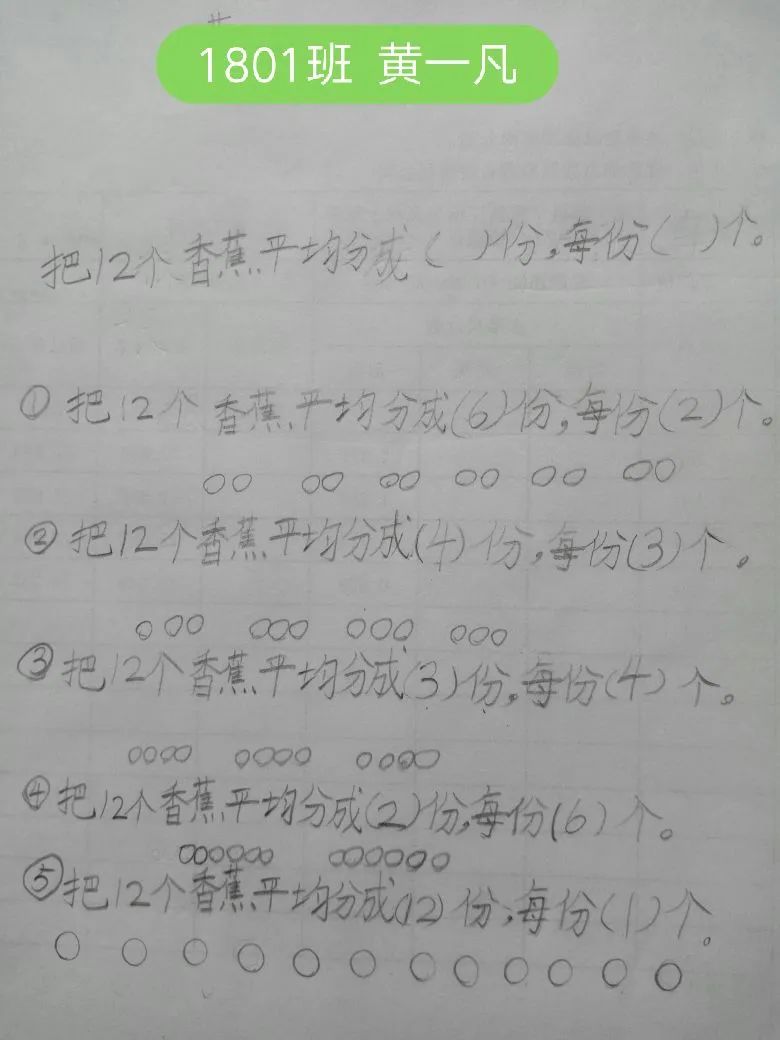 1801班 黄一凡
把12个香蕉平均分成( )份,每份( )个。
①把12个香蕉平均分成(6)份,每份(2)个。
②把12个香蕉平均分成(4)份,每份(3)个。
③把12个香蕉平均分成(3)份,每份(4)个。
④把12个香蕉平均分成(2)份,每份(6)个。
⑤把12个香蕉平均分成(12)份,每份(1)个。